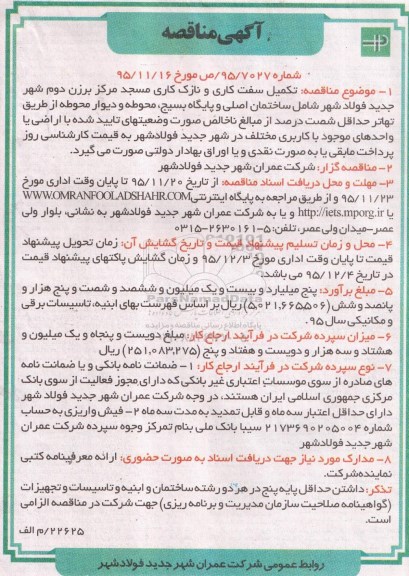 آگهی مناقصه
شماره ۹۵/۷۰۲۷/ص مورخ ۹۵/۱۱/۱۶
۱- موضوع مناقصه: تکمیل سفت کاری و نازک کاری مسجد مرکز برزن دوم شهر
جدید فولاد شهر شامل ساختمان اصلی و پایگاه بسیج، محوطه و دیوار محوطه از طریق
تهاتر حداقل شصت درصد از مبالغ ناخالص صورت وضعیتهای تایید شده با اراضی یا
واحدهای موجود با کاربری مختلف در شهر جدید فولادشهر به قیمت کارشناسی روز
پرداخت مابقی یا به صورت نقدی و یا اوراق بهادار دولتی صورت می گیرد.
۲- مناقصه گزار: شرکت عمران شهر جدید فولادشهر
۳- مهلت و محل دریافت اسناد مناقصه: از تاریخ ۹۵/۱۱/۲۰ تا پایان وقت اداری مورخ
۹۵/۱۱/۲۳ و از طریق مراجعه به پایگاه اینترنتی WWW.OMRANFOOLADSHAHR.COM
یا http://iets.mporg.ir و یا به شرکت عمران شهر جدید فولادشهر به نشانی، بلوار ولی
عصر-میدان ولی عصر، تلفن: ۵-۲۶۳۰۱۶۱-۰۳۱۵
۴- محل و زمان تسلیم پیشنهاد قیمت و تاریخ گشایش آن: زمان تحویل پیشنهاد
قیمت تا پایان وقت اداری مورخ ۹۵/۱۲/۳ و زمان گشایش پاکتهای پیشنهاد قیمت
در تاریخ ۹۵/۱۲/۴ می باشد.
۵- مبلغ برآورد: پنج میلیارد و بیست و یک میلیون و ششصد و شصت و پنج هزار و
پانصد و شش (۵.۰۲۱.۶۶۵.۵۰۶) ریال بر اساس فهرست بهای ابنیه، تاسیسات برقی
و مکانیکی سال ۹۵.
۶- میزان سپرده شرکت در فرآیند ارجاع کار: مبلغ دویست و پنجاه و یک میلیون و
هشتاد و سه هزار و دویست و هفتاد و پنج (۲۵۱.۰۸۳.۲۷۵) ریال
۷- نوع سپرده شرکت در فرآیند ارجاع کار: ۱- ضمانت نامه بانکی و یا ضمانت نامه
های صادره از سوی موسسات اعتباری غیر بانکی که دارای مجوز فعالیت از سوی بانک
مرکزی جمهوری اسلامی ایران هستند، در وجه شرکت عمران شهر جدید فولاد شهر
دارای حداقل اعتبار سه ماه و قابل تمدید به مدت سه ماه ۲- فیش واریزی به حساب
شماره ۲۱۷۳۶۹۰۲۰۵۰۰۴ سیبا بانک ملی بنام تمرکز وجوه سپرده شرکت عمران
شهر جدید فولادشهر
۸- مدارک مورد نیاز جهت دریافت اسناد به صورت حضوری: ارائه معرفینامه کتبی
نماینده شرکت.
تذکر: داشتن حداقل پایه پنج در هر دو رشته ساختمان و ابنیه و تاسیسات و تجهیزات
(گواهینامه صلاحیت سازمان مدیریت و برنامه ریزی) جهت شرکت در مناقصه الزامی
است.
۲۲۶۲۵/م الف
روابط عمومی شرکت عمران شهر جدید فولادشهر